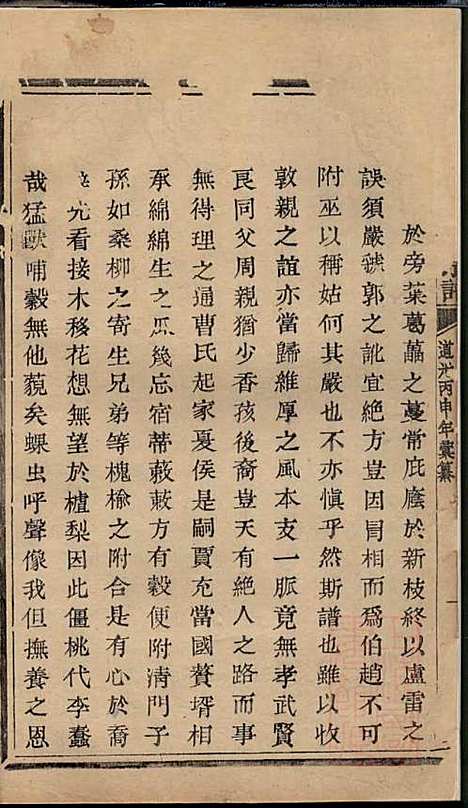 於旁葉葛藟之蔓當庇廕於新枝終以盧雷之
誤須嚴虢郭之訛宜絕方豈因冒相而爲伯趙不可
附巫以稱姑何其嚴也不亦慎乎然斯譜也雖以收
敦親之誼亦當歸維厚之風本支一脈竟無孝武賢
良同父周親猶少香孩後裔豈天有絕人之路而事
無得理之通曹氏起家夏侯是嗣賈充當國贅壻相
承綿綿生之瓜幾忘宿蒂蔌蔌方有穀便附清門子
孫如桑柳之寄生兄弟等槐榆之附合是有心於裔
先看接木移花想無望於樝梨因此僵桃代李蠢
哉猛獸哺穀無他藐矣蜾虫呼聲像我但撫養之恩
譜
道光丙申年彙纂
一